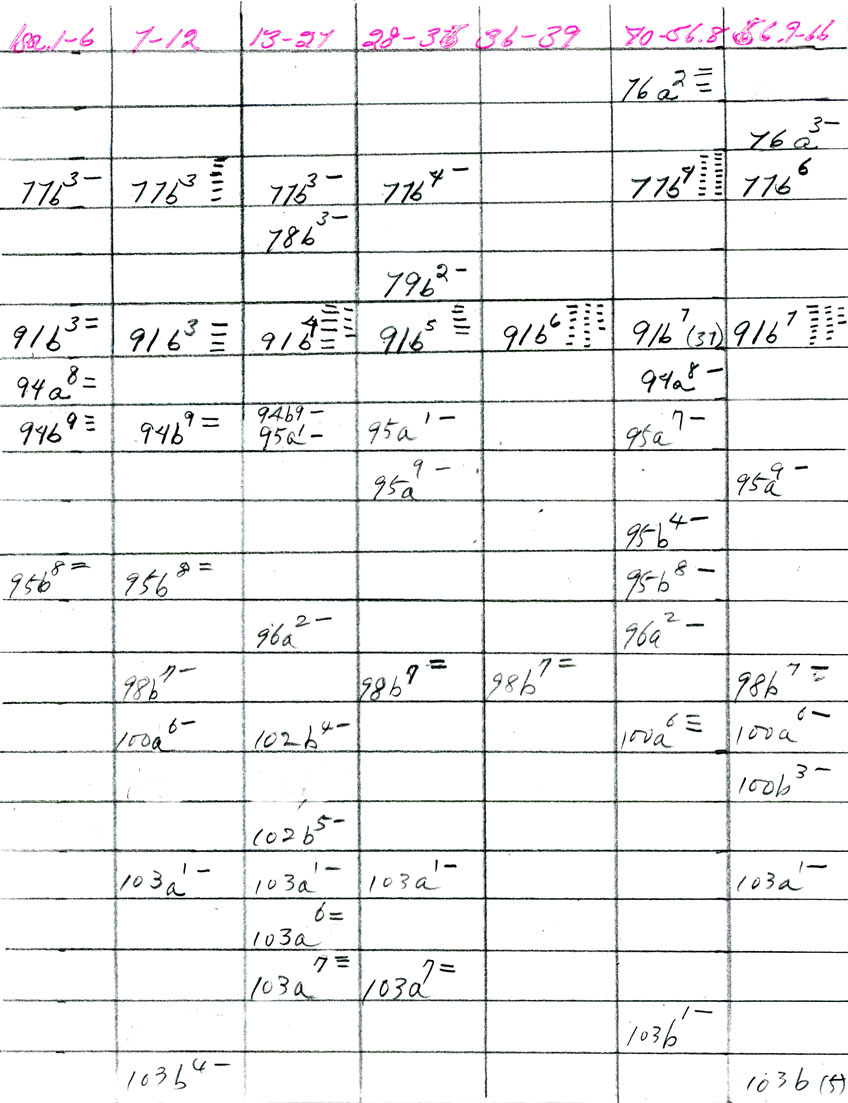 Isa. 1-6 7-12 13-27 28-35 36-39 40-56.8 56.9-66
76a² ≡
76a³ -
77b³ - 77b³ 77b³ - 77b⁴ - 77b⁴ 77b⁶
78b³ -
79b² -
91b³ = 91b³ 91b⁴ 91b⁵ 91b⁶ 91b⁷ (37) 91b⁷
94a⁸ = 94a⁸ -
94b⁹ ≡ 94b⁹ = 94b9 - 95a¹ - 95a⁷ -
95a¹ -
95a⁹ - 95a⁹ -
95b⁴ -
95b⁸ = 95b⁸ = 95b⁸ -
96a² - 96a² -
98b⁷ - 98b⁷ = 98b⁷ = 98b⁷ =
100a⁶ - 102b⁴ - 100a⁶ ≡ 100a⁶ -
100b³ -
102b⁵ -
103a¹ - 103a¹ - 103a¹ - 103a¹ -
103a⁶ =
103a⁷ ≡ 103a⁷ =
103b¹ -
103b⁴ - 103b (5)